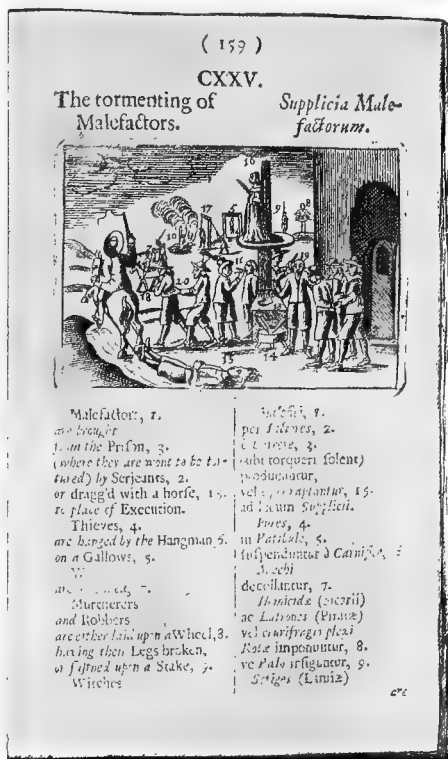 ( 159 )
CXXV.
The tormenting of
Malefactors.
Supplicia Male-
factorum.
Malefactors, 1.
are brought
from the Prison, 3.
(where they are wont to be tor-
tured) by Serjeants, 2.
or dragg'd with a horse, 15.
to place of Execution.
Thieves, 4.
are hanged by the Hangman, 6.
on a Gallows, 5.
7.
Murtherers
and Robbers
are either laid upon a Wheel, 8.
having their Legs broken,
or fastned upon a Stake, 9.
Witches
1.
per Lictores, 2.
è Carcere, 3.
(ubi torqueri solent)
producuntur,
vel raptantur, 15.
ad locum Supplicii.
Fures, 4.
in Patibulo, 5.
suspenduntur à Carnifice, 6
Mœchi
decollantur, 7.
Homicidæ (sicarii)
ac Latrones (Piratæ)
vel crurifragio plexi
Rotæ imponuntur, 8.
vel Palo infiguntur, 9.
Striges (Lamiæ)
are